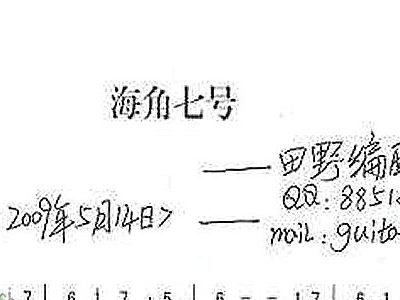 海角七号
—— 田野编配
QQ: 8851
2009年5月14日> —— mail: guita
7 | 6 1 7 · 5 | 6 - - 1 7 | 6 1